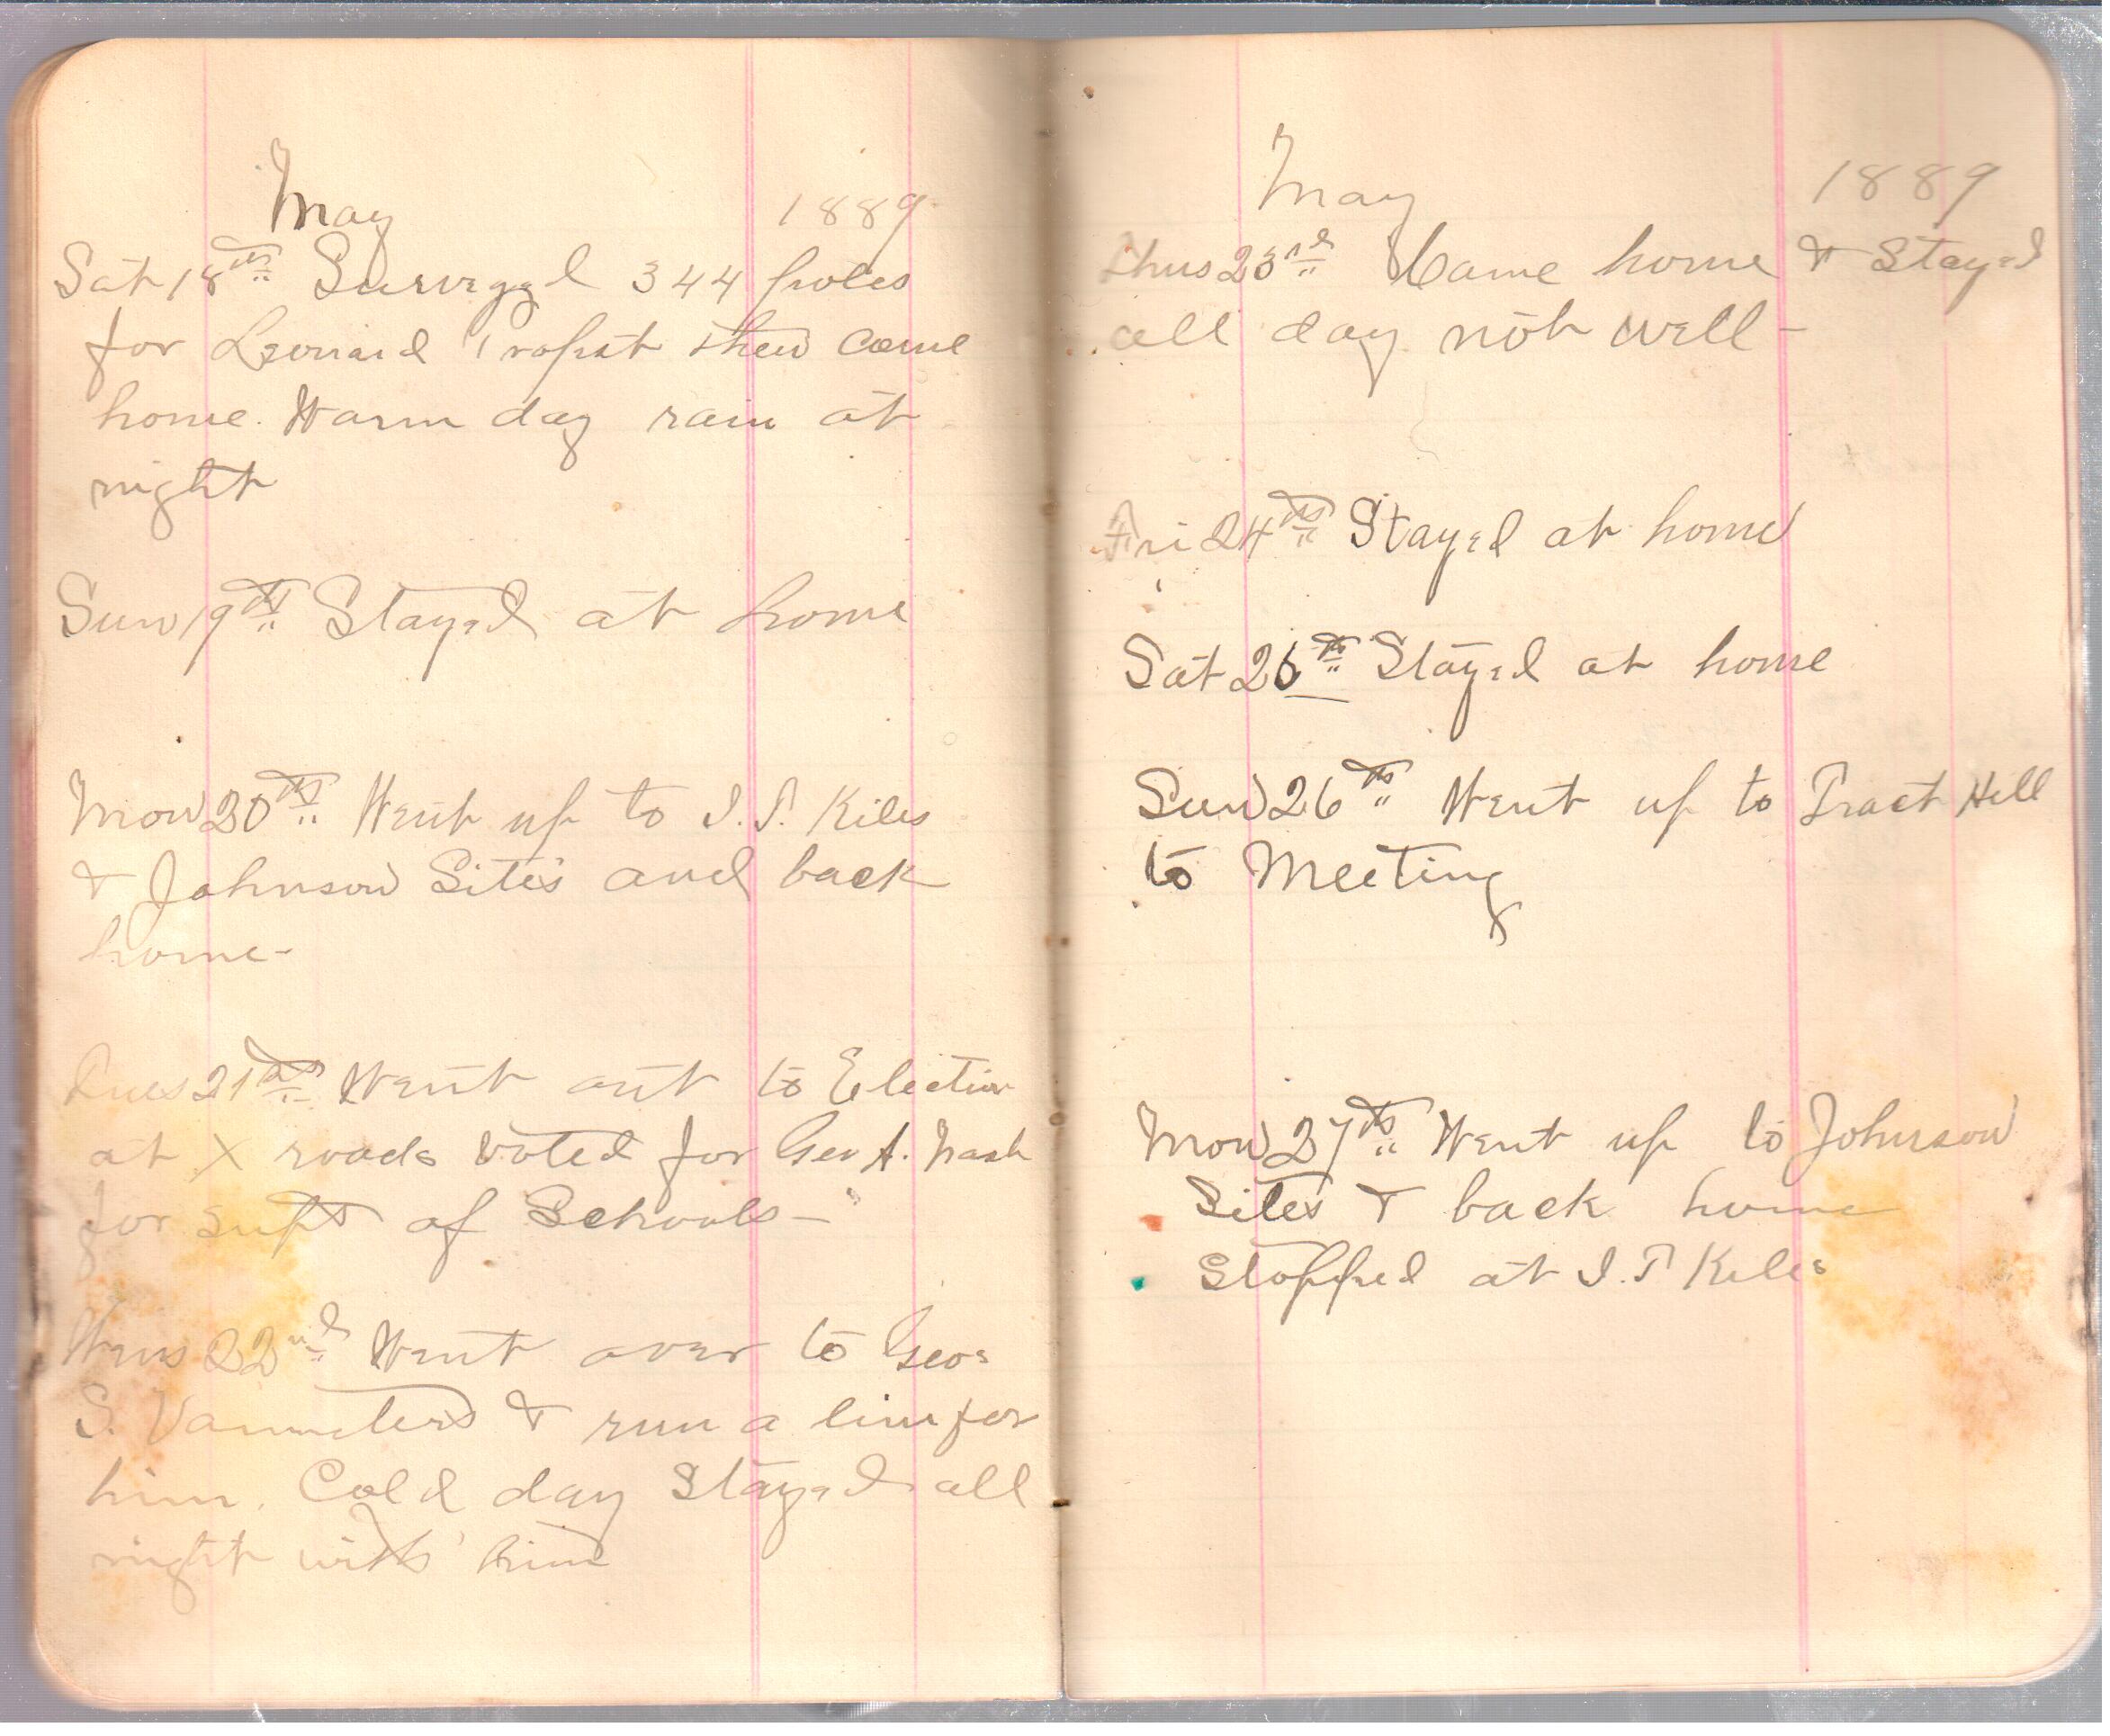 May 1889
Sat 18th Surveyed 344 poles
for Leonard Propst then came
home. Warm day rain at
night
Sun 19th Stayed at home
Mon 20th Went up to I. T. Kiles
& Johnson Sites and back
home-
Tues 21st Went out to Election
at X roads voted for Geo A. Nash
for supt of Schools-
Wens 22nd Went over to Geo.
S. Vanmeters & run a line for
him. Cold day Stayed all
night with him
May 1889
Thus 23rd Came home & Stayed
all day not well-
Fri 24th Stayed at home
Sat 25th Stayed at home
Sun 26th Went up to Tract Hill
to Meeting
Mon 27th Went up to Johnson
Sites & back home
Stopped at I. T Kiles